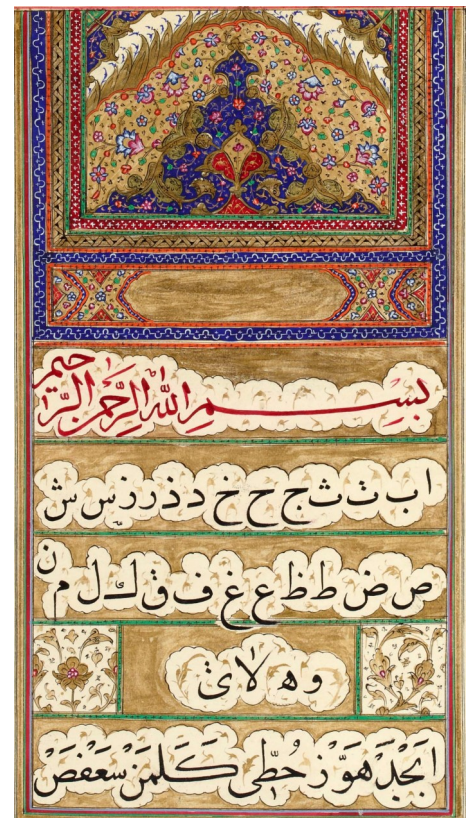 بِسْمِ اللهِ الرَّحْمنِ الرَّحيم
ا ب ت ث ج ح خ د ذ ر ز س ش
ص ض ط ظ ع غ ف ق ك ل م ن
و ه لا ى
اَبْجَدْ هَوَّزْ حُطِّى كَلَمَنْ سَعْفَصْ